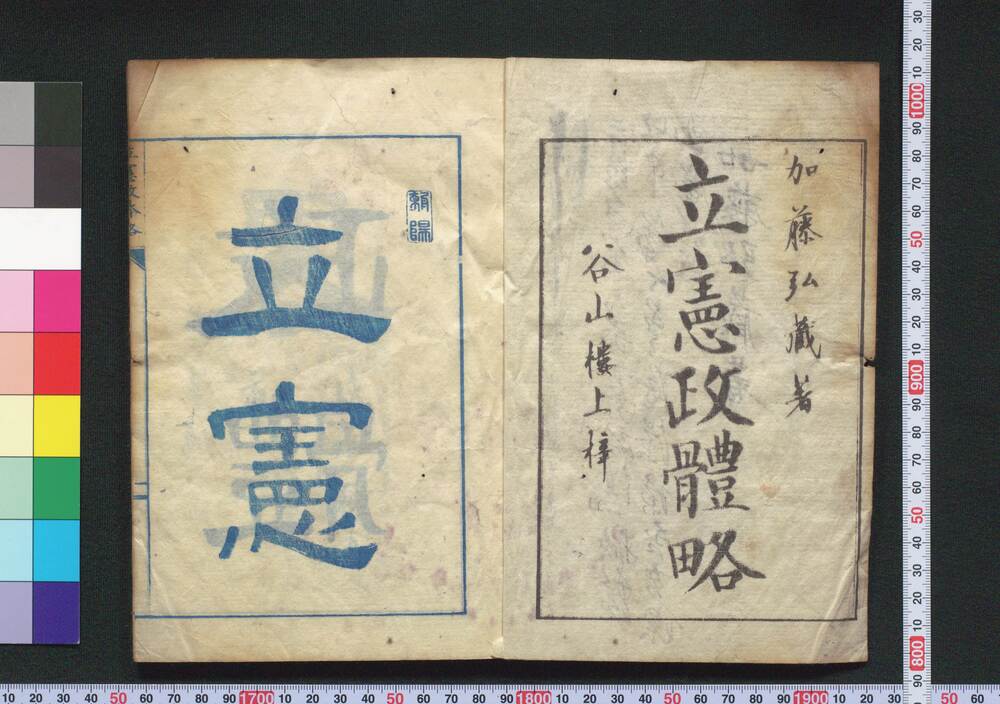 加藤弘藏著
立憲政體略
谷山樓上梓
立憲